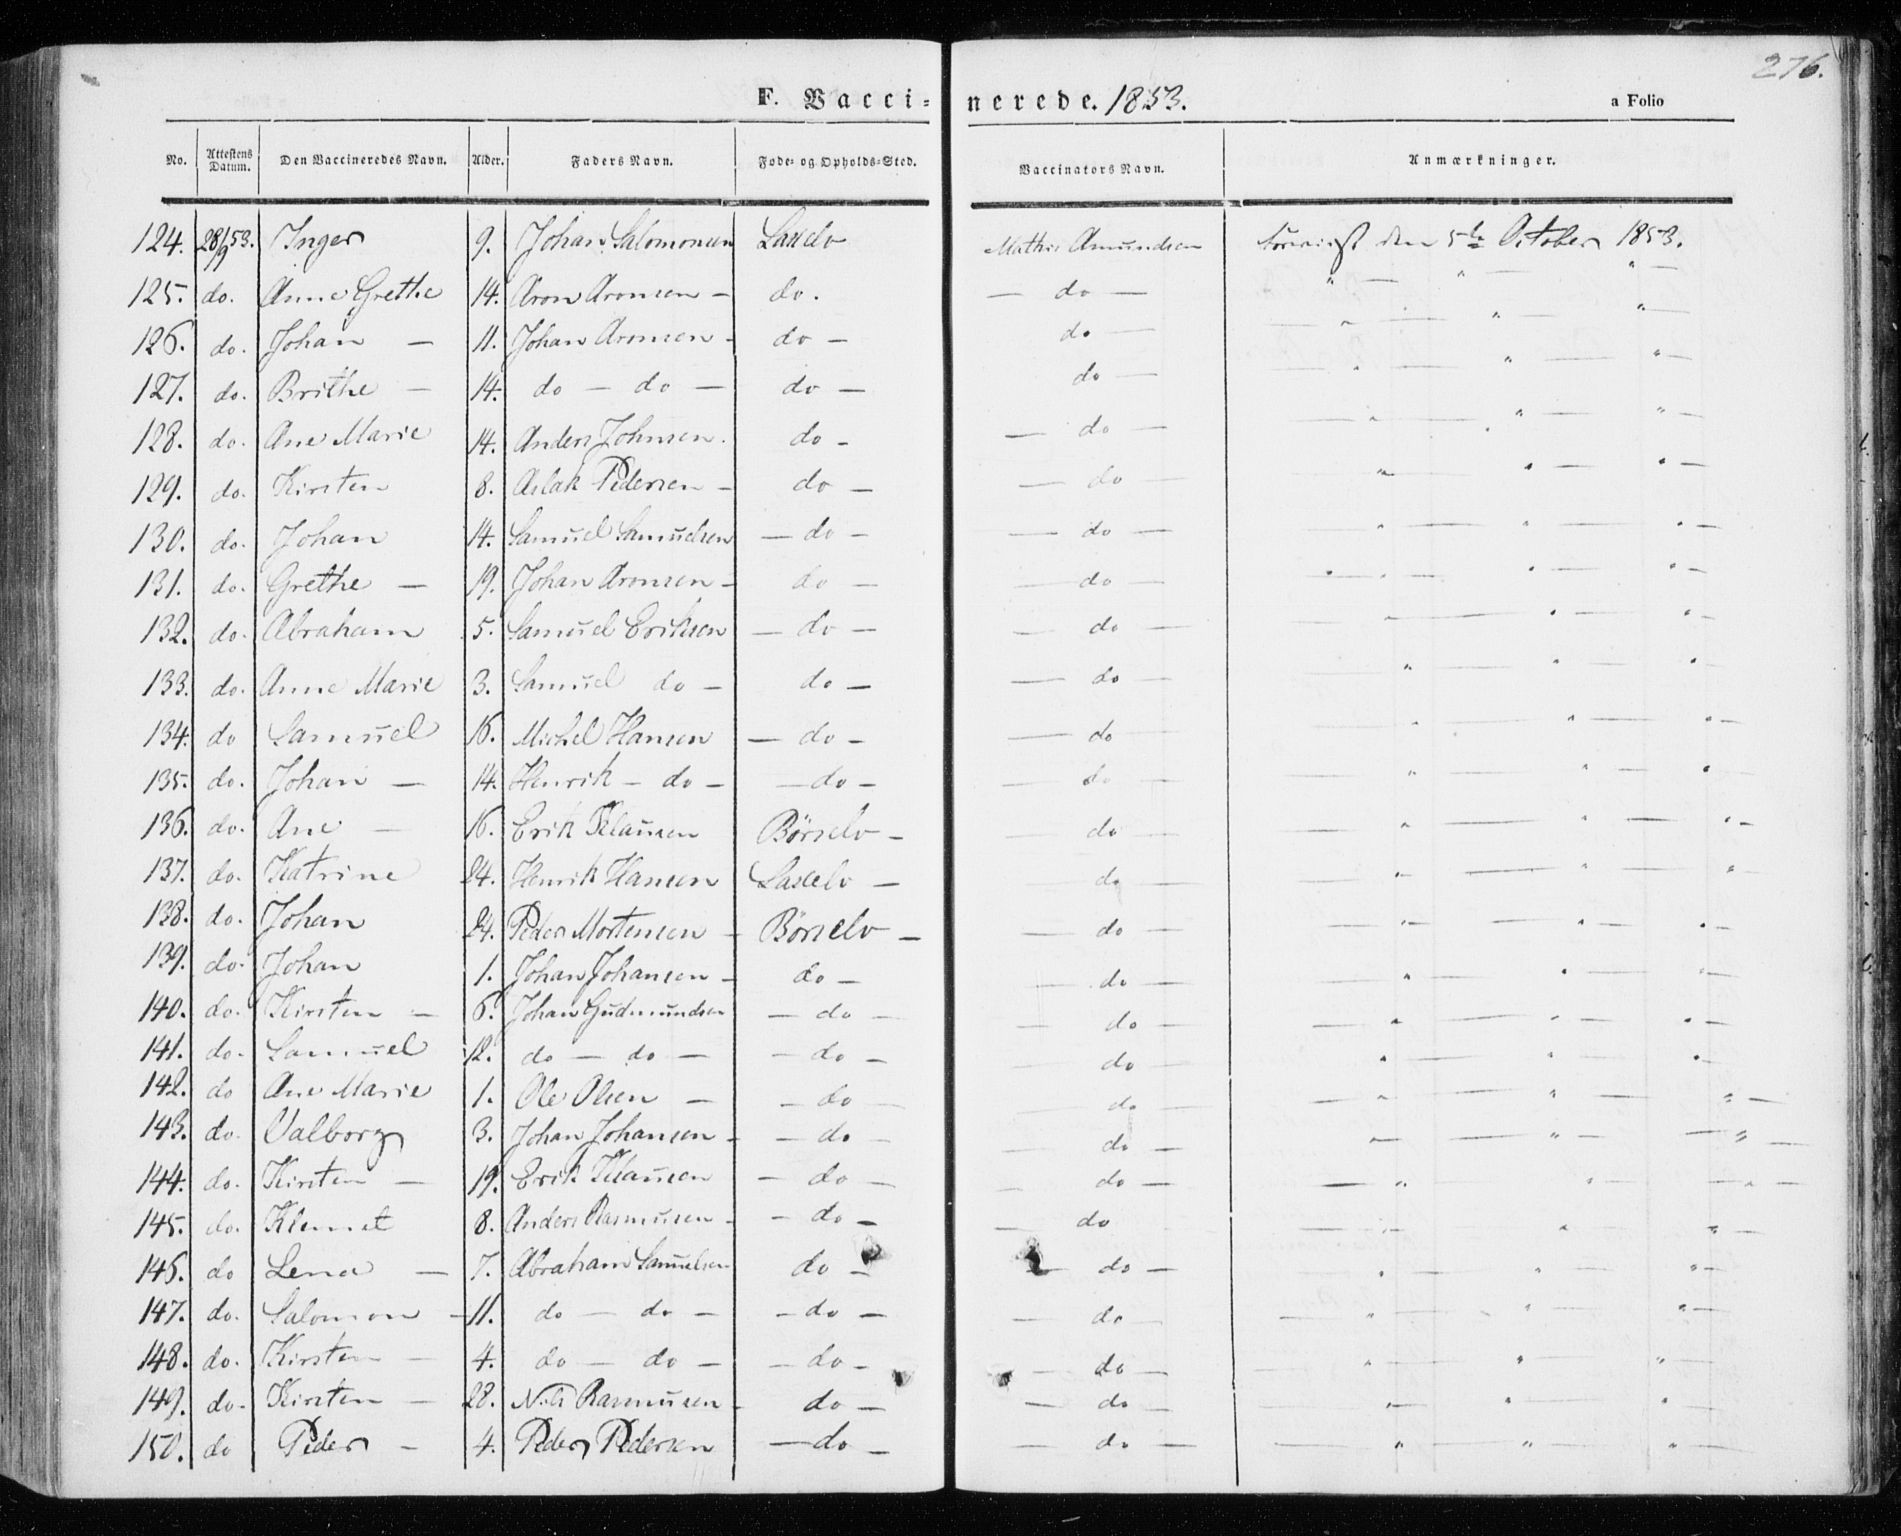 276.
F. Vacci= nerede. 1853. a Folio
No. Attestens Datum. Den Vaccineredes Navn. Alder. Faders Navn. Føde= og Opholds=Sted. Vaccinators Navn. Anmærkninger.
124. 28/9 53. Inger 9. Johan Salomonsen Laxelv Mathis Amundsen den 5te October 1853.
125. do. Anne Grethe 14. Aron Aronsen — do. — do — " — " — " —
126. do. Johan — 11. Johan Aronsen - do — do — — " — " — " —
127. do. Brithe — 14. do — do — do — do — — " — " — " —
128. do. Ane Marie 14. Anders Johnsen. do - — do — — " — " — " —
129. do. Kirsten 8. Aslak Pedersen — do — — do — " — " — " —
130. do. Johan 14. Samuel Samuelsen — do — — do — — " — " — " —
131. do. Grethe — 19. Johan Aronsen — do — — do — " — " — " —
132. do. Abraham 5. Samuel Eriksen — do — — do — — " — " — " —
133. do. Anne Marie 3. Samuel do — do — — do — " — " — " —
134. do Samuel 16. Michel Hansen — do — — do — — " — " — " —
135. do. Johan — 14. Henrik — do — — do — — do — — " — " — "
136. do. Ane — 16. Erik Klausen Börselv — — do — — " — " — " —
137. do. Katrine 24. Henrik Hansen Laxelv — — do — — " — " — " —
138. do. Johan 24. Peder Mortensen — Börselv — — do — — " — " — " —
139. do. Johan 1. Johan Johansen — do — — do — — " — " — " —
140. do. Kirsten — 6. Johan Gudmundsen — do — — do — — " — " — " —
141. do. Samuel 12. do — do — — do — — do — — " — " — "
142. do Ane Marie 1. Ole Olsen — — do — — do — — " — " — " —
143. do. Valborg 3. Johan Johansen — — do — — do — — " — " — " —
144. do. Kirsten — 19. Erik Klausen — do — — do — — " — " — " —
145. do. Klemet 8. Anders Rasmusen — — do — — do — " — " — " —
146. do Lena — 7. Abraham Samuelsen do — — do — — " — " — " —
147. do. Salomon — 11. do — do — — do — — do — — " — " — " —
148. do. Kirsten — 4. do — do — — do — — do — — " — " — "
149. do. Kirsten — 28. Nils Rasmusen — do — — do — — " — " — " —
150. do Peder — 4. Peder Pedersen — do — — do — — " — " — " —